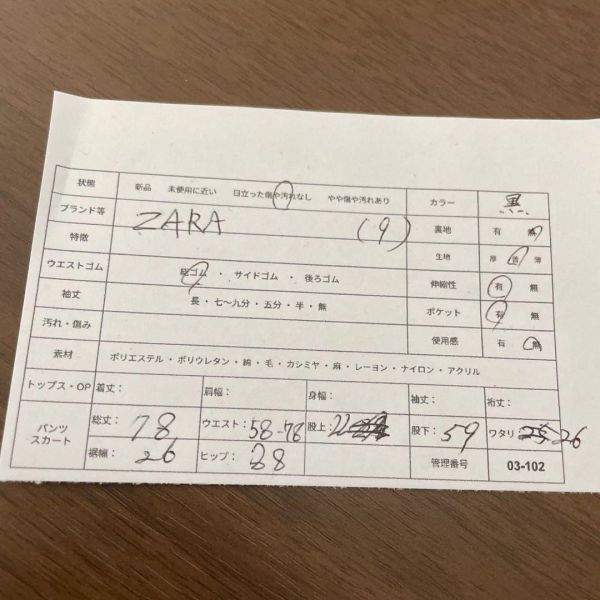 状態 新品 未使用に近い 目立った傷や汚れなし やや傷や汚れあり カラー 黒
ブランド等 ZARA (9) 裏地 有 無
特徴 生地 厚 普 薄
ウエストゴム 総ゴム ・ サイドゴム ・ 後ろゴム 伸縮性 有 無
袖丈 長・七〜九分・五分・半・無 ポケット 有 無
汚れ・傷み 使用感 有 無
素材 ポリエステル・ポリウレタン・綿・毛・カシミヤ・麻・レーヨン・ナイロン・アクリル
トップス・OP 着丈: 肩幅: 身幅: 袖丈: 裄丈:
パンツ スカート 総丈: 78 ウエスト: 58-78 股上: 22 股下: 59 ワタリ 26
裾幅: 26 ヒップ: 88 管理番号 03-102